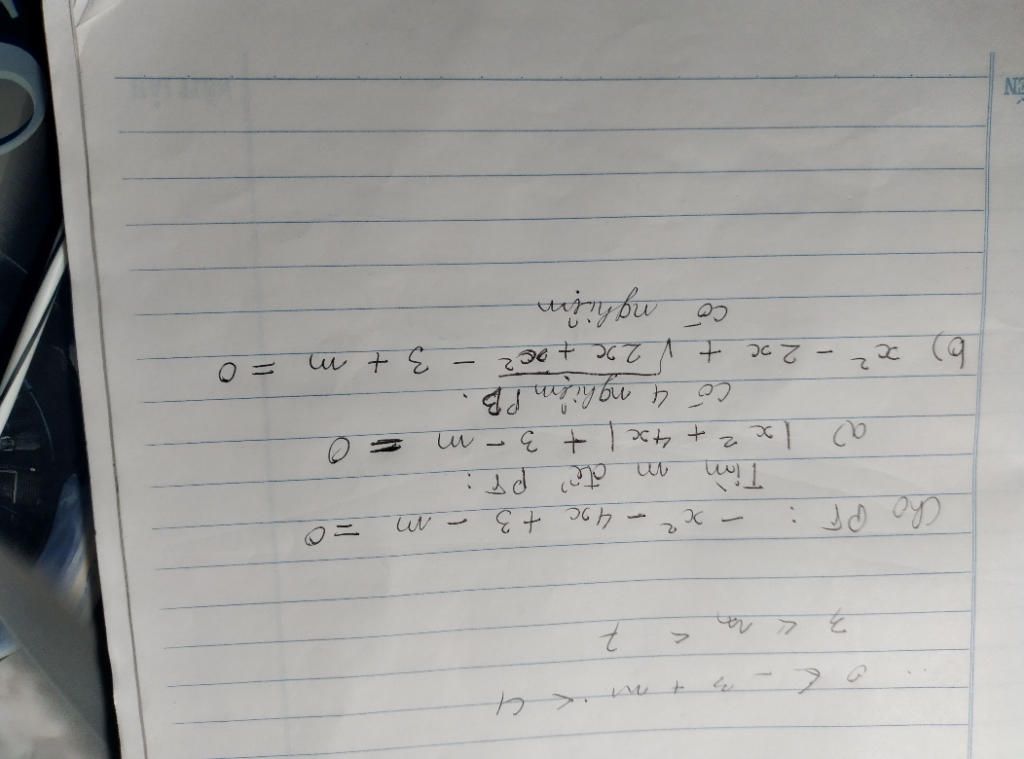 0 < -3 + m < 4
3 < m < 7
Cho PT : - x² - 4x + 3 - m = 0
Tìm m để PT :
a) |x² + 4x| + 3 - m = 0
có 4 nghiệm PB.
b) x² - 2x + √(2x + x²) - 3 + m = 0
có nghiệm